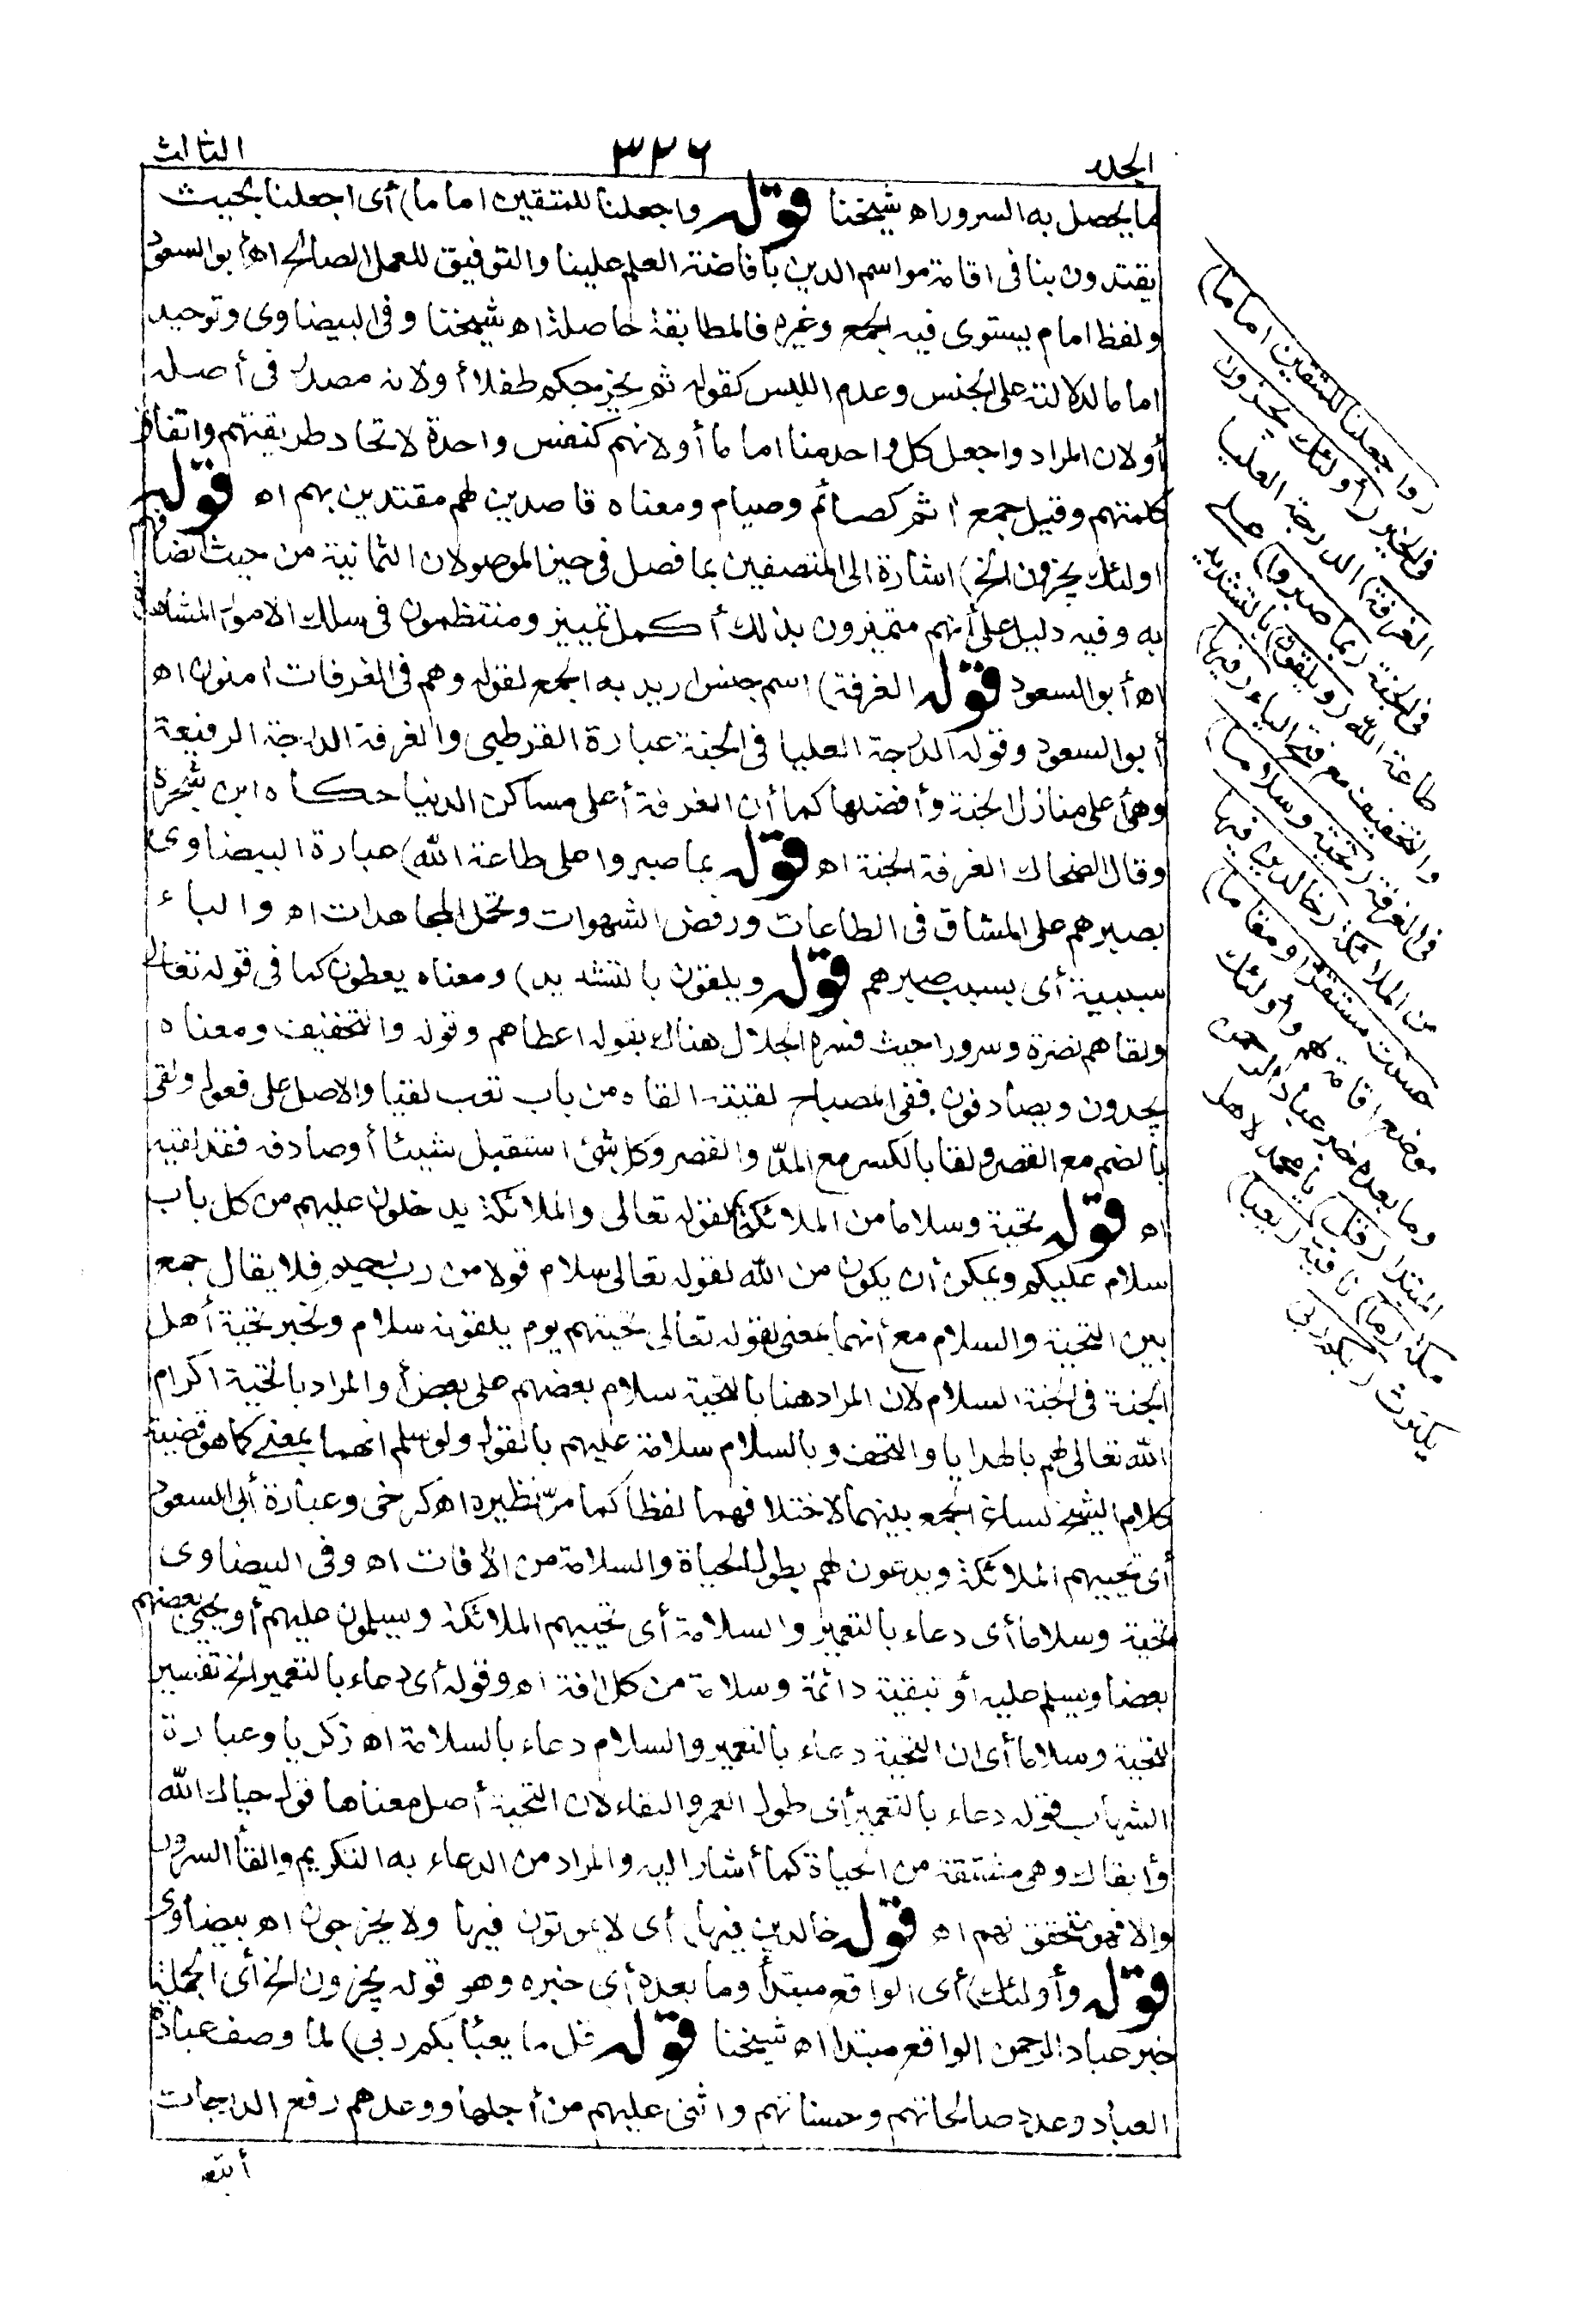 المجلد ٣٢٦ الثالث
ما يحصل به السرور اه شيخنا قوله واجعلنا للمتقين اماما) أى اجعلنا بحيث
يقتدون بنا فى اقامة مواسم الدين بافاضة العلم علينا والتوفيق للعمل الصالح اه أبو السعود
ولفظ امام يستوى فيه الجمع وغيره فالمطابقة حاصلة اه شيخنا وفى البيضاوى وتوحيد
اماما لدلالته على الجنس وعدم اللبس كقوله ثم يخرجكم طفلا أو لانه مصدر فى أصله
أو لان المراد واجعل كل واحد منا اماما أو لانهم كنفس واحدة لاتحاد طريقتهم واتفاق
كلمتهم وقيل جمع اثم كصائم وصيام ومعناه قاصدين لهم مقتدين بهم اه قوله
اولئك يجزون الخ) اشارة الى المتصفين بما فصل فى حيز الموصولان الثمانية من حيث اتصافهم
به وفيه دليل على أنهم متميزون بذلك أكمل تمييز ومنتظمون فى سلك الامور المشاهدة
اه أبو السعود قوله الغرفة) اسم جنس اريد به الجمع لقوله وهم فى الغرفات امنون اه
أبو السعود وقوله الدرجة العليا فى الجنة عبارة القرطبى والغرفة الدرجة الرفيعة
وهى أعلى منازل الجنة وأفضلها كما أن الغرفة أعلى مساكن الدنيا حكاه ابن شجرة
وقال الضحاك الغرفة الجنة اه قوله بما صبروا على طاعة الله) عبارة البيضاوى
بصبرهم على المشاق فى الطاعات ورفض الشهوات وتحمل المجاهدات اه والباء
سببية أى بسبب صبرهم قوله ويلقون بالتشديد) ومعناه يعطون كما فى قوله تعالى
ولقاهم نضرة وسرورا حيث فسره الجلال هناك بقوله اعطاهم وقوله والتخفيف ومعناه
يجدون ويصادفون ففى المصباح لقيته القاه من باب تعب لقيا والاصل على فعول ولقى
بالضم مع القصر ولقا بالكسر مع المد والقصر وكل شئ استقبل شيئا أو صادفه فقد لقيه
اه قوله تحية وسلاما من الملائكة) لقوله تعالى والملائكة يدخلون عليهم من كل باب
سلام عليكم ويمكن أن يكون من الله لقوله تعالى سلام قولا من رب رحيم فلا يقال جمع
بين التحية والسلام مع أنهما بمعنى لقوله تعالى تحيتهم يوم يلقونه سلام وتخبر تحية أهل
الجنة فى الجنة السلام لان المراد هنا بالتحية سلام بعضهم على بعض أو المراد بالتحية اكرام
الله تعالى لهم بالهدايا والتحف وبالسلام سلامه عليهم بالقول ولو سلم انهما بمعنى كما هو قضية
كلام الشيخ لساغ الجمع بينهما لاختلافهما لفظا كما مر نظيره اه كرخى وعبارة أبى السعود
أى تحييهم الملائكة ويدعون لهم بطول الحياة والسلامة من الافات اه وفى البيضاوى
تحية وسلاما أى دعاء بالتعمير والسلامة أى تحييهم الملائكة ويسلمون عليهم أو يحيى بعضهم
بعضا ويسلم عليه أو تبقية دائمة وسلامة من كل افة اه وقوله أى دعاء بالتعمير الخ تفسير
للتحية وسلاما أى ان التحية دعاء بالتعمير والسلام دعاء بالسلامة اه زكريا وعبارة
الشهاب فقوله دعاء بالتعمير أى طول العمر والبقاء لان التحية أصل معناها قول حياك الله
وأبقاك وهى مشتقة من الحياة كما أشار اليه والمراد من الدعاء به التكريم والقاء السرور
والا فهو متحقق لهم اه قوله خالدين فيها) أى لا يموتون فيها ولا يخرجون اه بيضاوى
قوله وأولئك) أى الواقع مبتدأ وما بعده أى خبره وهو قوله يجزون الخ أى الجملة
خبر عباد الرحمن الواقع مبتدا اه شيخنا قوله قل ما يعبأ بكم ربى) لما وصف عباده
العباد وعدد صالحاتهم وحسناتهم واثنى عليهم من أجلها ووعدهم رفع الدرجات
(واجعلنا للمتقين اماما)
فى الخير (أولئك يجزون
الغرفة) الدرجة العليا
فى الجنة (بما صبروا) على
طاعة الله (ويلقون) بالتشديد
والتخفيف مع فتح الياء (فيها)
فى الغرفة (تحية وسلاما)
من الملائكة (خالدين فيها
حسنت مستقرا ومقاما)
موضع اقامة لهم وأولئك
وما بعده خبر عباد الرحمن
المبتدا (قل) يا محمد لاهل
مكة (ما) نافية (يعبأ)
يكترث (بكم ربى